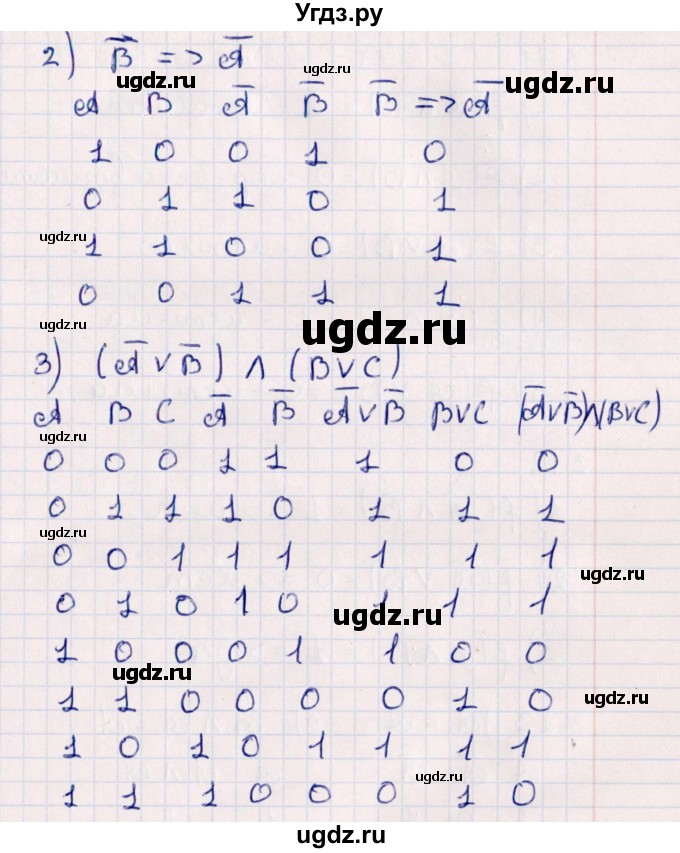 Угдз.ру
2) B̅ => A̅
ugdz.ru ugdz.ru ugdz.ru
A B A̅ B̅ B̅ => A̅
1 0 0 1 0
0 1 1 0 1
ugdz.ru
1 1 0 0 1
0 0 1 1 1
ugdz.ru ugdz.ru
3) (A̅ ∨ B̅) ∧ (B∨C)
A B C A̅ B̅ A̅∨B̅ B∨C (A̅∨B̅)∧(B∨C)
ugdz.ru
0 0 0 1 1 1 0 0
0 1 1 1 0 1 1 1
ugdz.ru
0 0 1 1 1 1 1 1
ugdz.ru
0 1 0 1 0 1 1 1
ugdz.ru
1 0 0 0 1 1 0 0
ugdz.ru
1 1 0 0 0 0 1 0
ugdz.ru
1 0 1 0 1 1 1 1
ugdz.ru
1 1 1 0 0 0 1 0
ugdz.ru